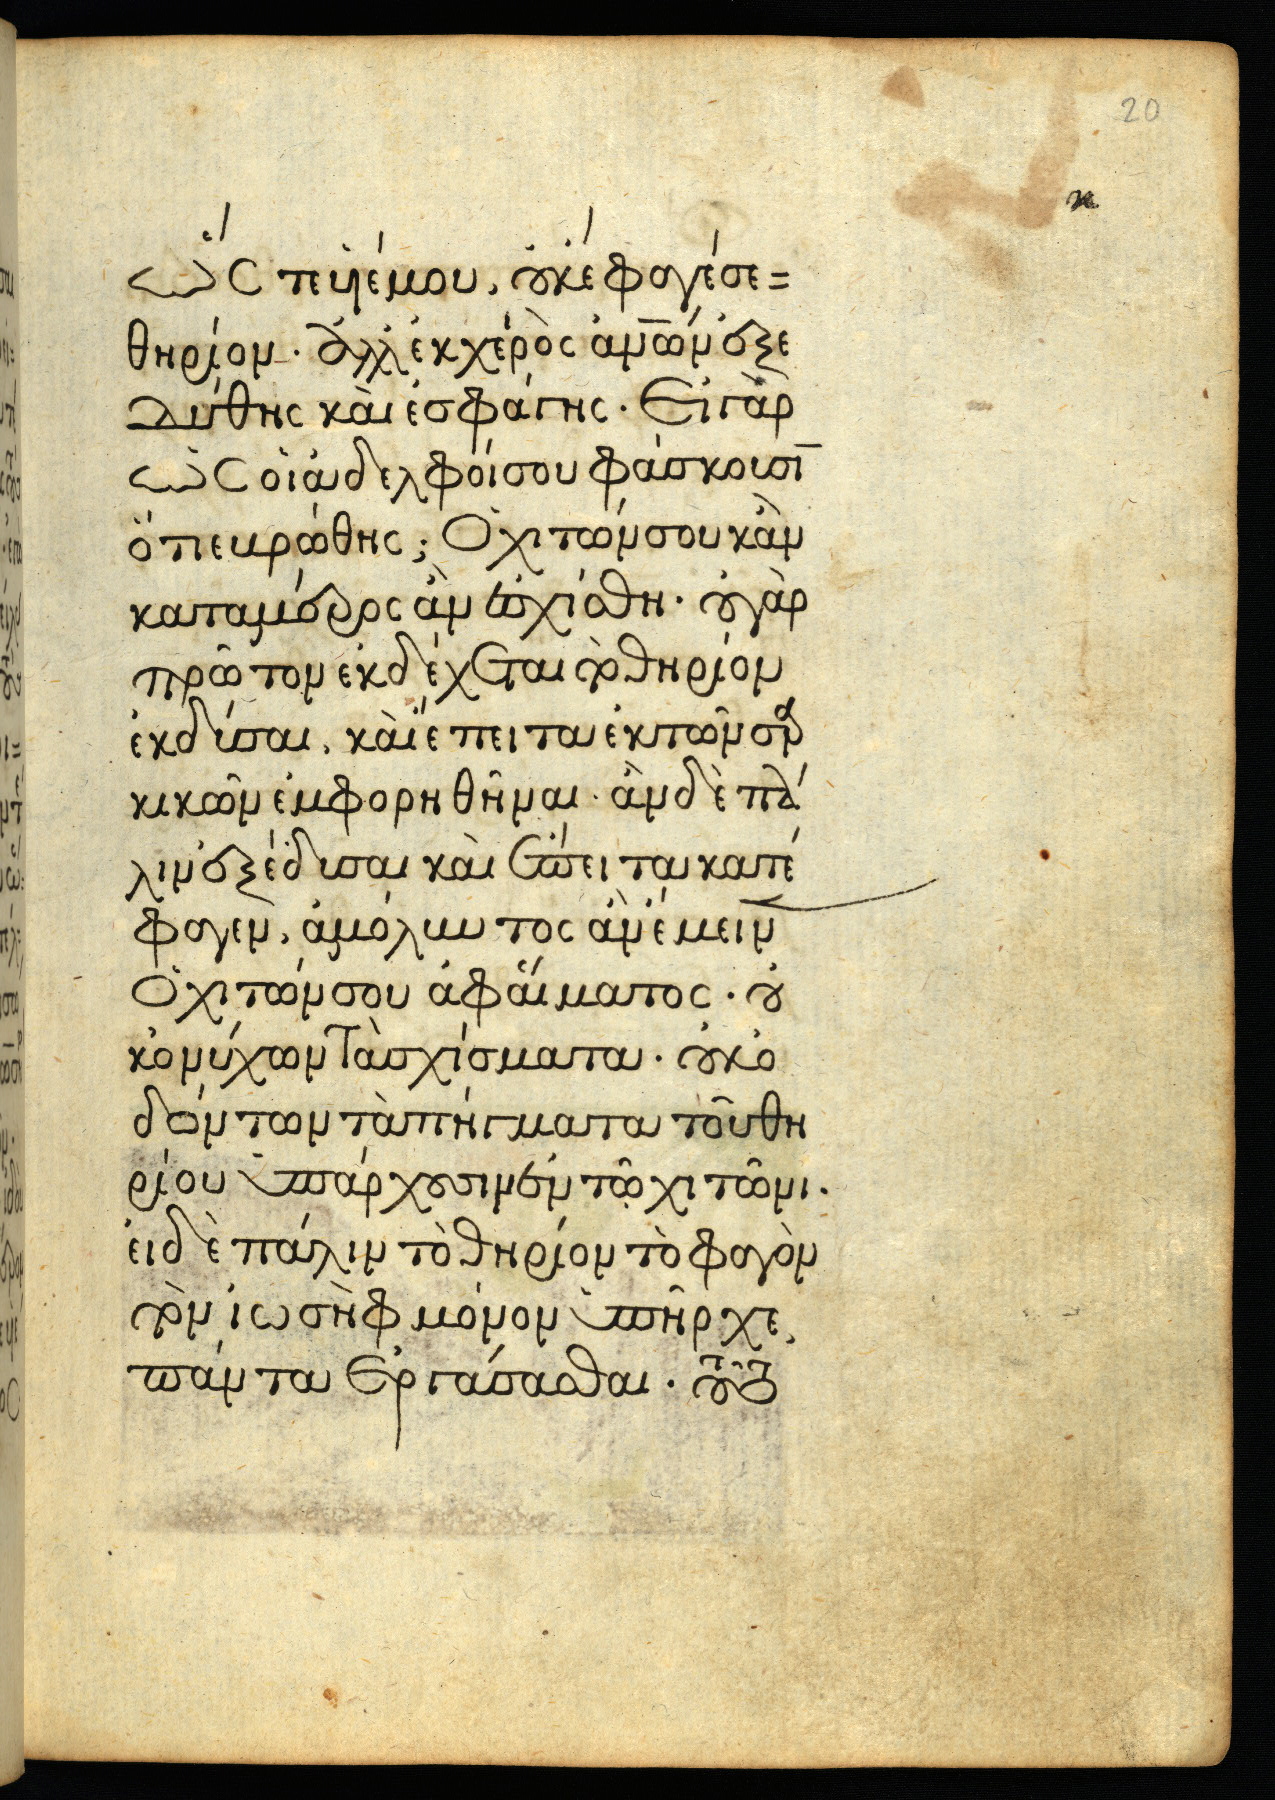 20
κ
ὡς τιἠέμου, οὐκ έφαγέσε=
θηρίον. ἀλλ' ἐκ χερὸς ἀν̅ων ἐξε
δύθης καὶ ἐσφάγης. Εἰ γὰρ
ὡς οἱ ἀδελφοί σου φάσκουσι̅
ὅτι ἐκρώθης; Ὁ χιτών σου κἂν
καταμέρος ἂν ἐσχίσθη. οὐ γὰρ
πρῶτον ἐκδέχεται τὸ θηρίον
ἐκδῦσαι, καὶ ἔπειτα ἐκ τῶν σαρ
κικῶν ἐμφορηθῆναι. ἂν δὲ πά
λιν ἐξέδυσαι καὶ ἔπειτα κατέ
φαγεν, ἀμόλυντος ἂν ἔμειν
Ὁ χιτών σου ἀφ' αἵματος. οὐ
κ ὀνύχων τὰ σχίσματα. οὐκ ὀ
δόντων τὰ πήγματα τοῦ θη
ρίου ὑπάρχουσιν ἐν τῷ χιτῶνι.
εἰ δὲ πάλιν τὸ θηρίον τὸ φαγὸν
τὸν ἰωσὴφ μόνον ὑπῆρχε,
πάντα ἐργάσασθαι.